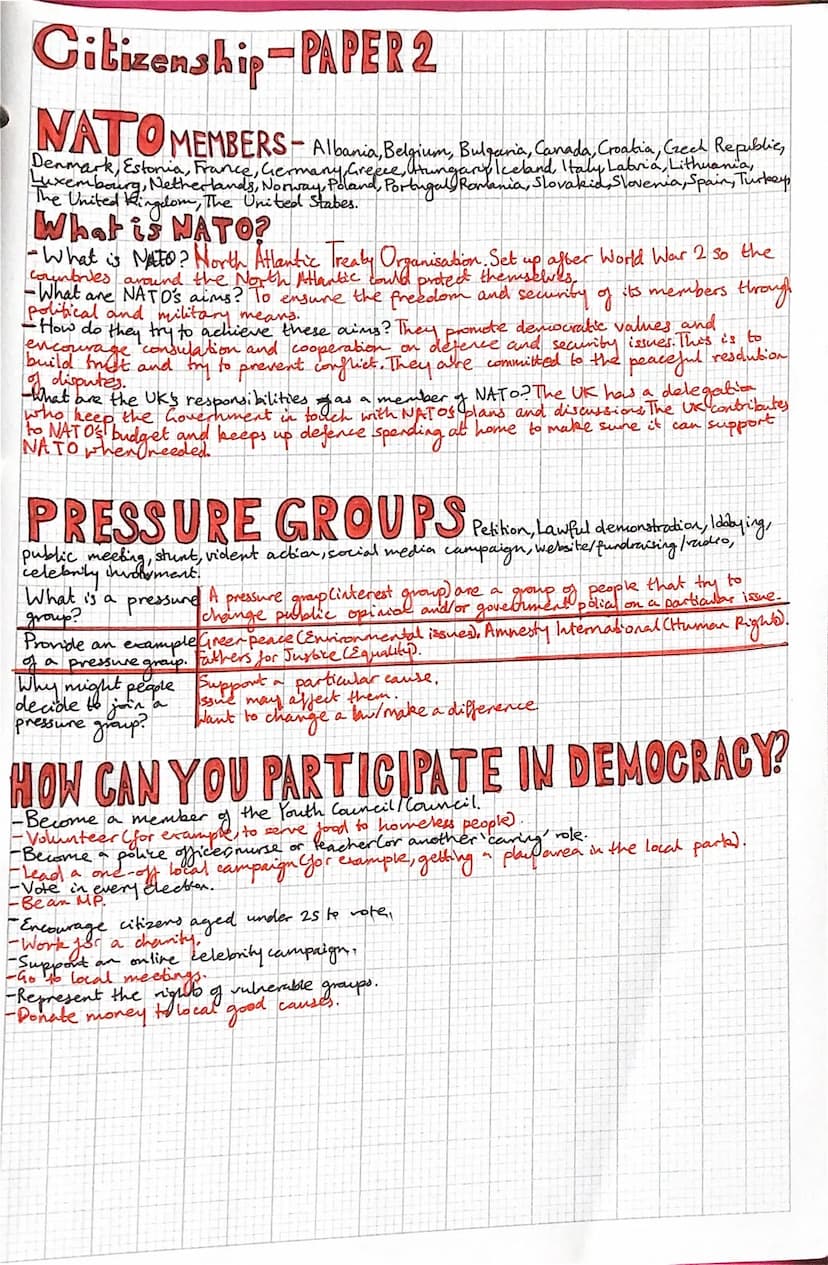 Citizenship-PAPER 2
NATO MEMBERS- Albania, Belgium, Bulgaria, Canada, Croatia, Czech Republic,
Denmark, Estonia, France, Germany, Greece, Hungary, Iceland, Italy, Labria, Lithuania,
Luxembourg, Netherlands, Norway, Poland, Portugal, Romania, Slovakia, Slovenia, Spain, Turkey,
The United Kingdom, The United States.
What is NATO?
-What is NATO? North Atlantic Treaty Organisation. Set up after World War 2 so the
countries around the North Atlantic could protect themselves.
-What are NATO's aims? To ensure the freedom and security of its members through
political and military means.
-How do they try to achieve these aims? They promote democratic values and
encourage consulation and cooperation on defence and security issues. This is to
build trust and try to prevent conflict. They are committed to the peaceful resolution
of disputes.
-What are the UK's responsibilities as a member of NATO? The UK has a delegation
who keep the Government in touch with NATO's plans and discussions. The UK contributes
to NATO's budget and keeps up defence spending at home to make sure it can support
NATO when needed.
PRESSURE GROUPS Petition, Lawful demonstration, lobbying,
public meeting, stunt, violent action, social media campaign, website/fundraising/radio,
celebrity involvement.
What is a pressure A pressure group (interest group) are a group of people that try to
group? change public opinion and/or government policy on a particular issue.
Provide an example Greenpeace (Environmental issues), Amnesty International (Human Rights).
of a pressure group. Fathers for Justice (Equality).
Why might people Support a particular cause.
decide to join a Issue may affect them.
pressure group? Want to change a law/make a difference
HOW CAN YOU PARTICIPATE IN DEMOCRACY?
-Become a member of the Youth Council/Council.
-Volunteer (for example, to serve food to homeless people).
-Become a police officer, nurse or teacher (or another 'caring' role.
-Lead a one-off local campaign (for example, getting a play area in the local park).
-Vote in every election.
-Be an MP.
-Encourage citizens aged under 25 to vote.
-Work for a charity.
-Support an online celebrity campaign.
-Go to local meetings.
-Represent the rights of vulnerable groups.
-Donate money to local good causes.